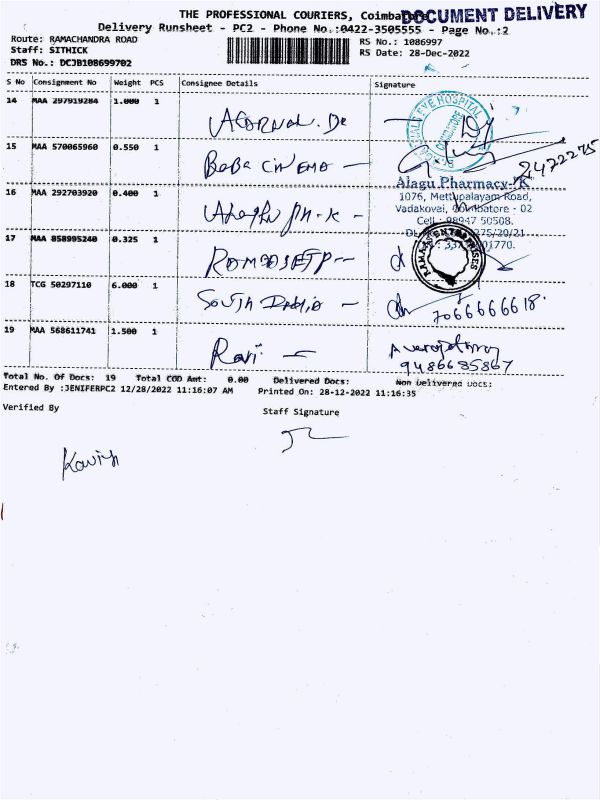 THE PROFESSIONAL COURIERS, Coimbatore
DOCUMENT DELIVERY
Delivery Runsheet - PC2 - Phone No.:0422-3505555 - Page No.:2
Route: RAMACHANDRA ROAD
Staff: SITHICK
DRS No.: DCJB108699702
RS No.: 1086997
RS Date: 28-Dec-2022
S No Consignment No Weight PCS Consignee Details Signature
14 MAA 297919284 1.000 1
EYE HOSPITAL
15 MAA 570065960 0.550 1 BaBa CINEMA -
2472275
Alagu Pharmacy-"K"
16 MAA 292703920 0.400 1
1076, Mettupalayam Road,
Vadakovai, Coimbatore - 02
Cell : 98947 50508.
17 MAA 858995240 0.325 1
ENTERPRISES
18 TCG 50297110 6.000 1 South
7066666618.
19 MAA 568611741 1.500 1 Ravi -
9486685867
Total No. Of Docs: 19 Total COD Amt: 0.00 Delivered Docs: Non Delivered Docs:
Entered By :JENIFERPC2 12/28/2022 11:16:07 AM Printed On: 28-12-2022 11:16:35
Verified By Staff Signature